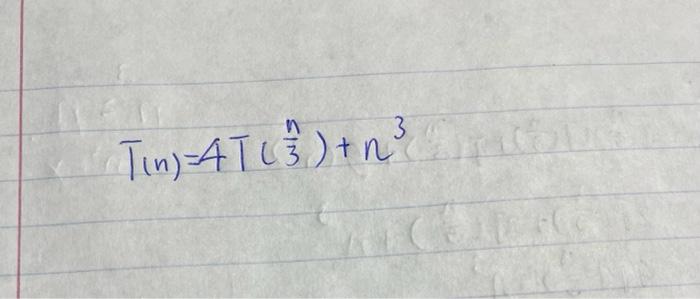 T(n)=4T(n/3)+n³